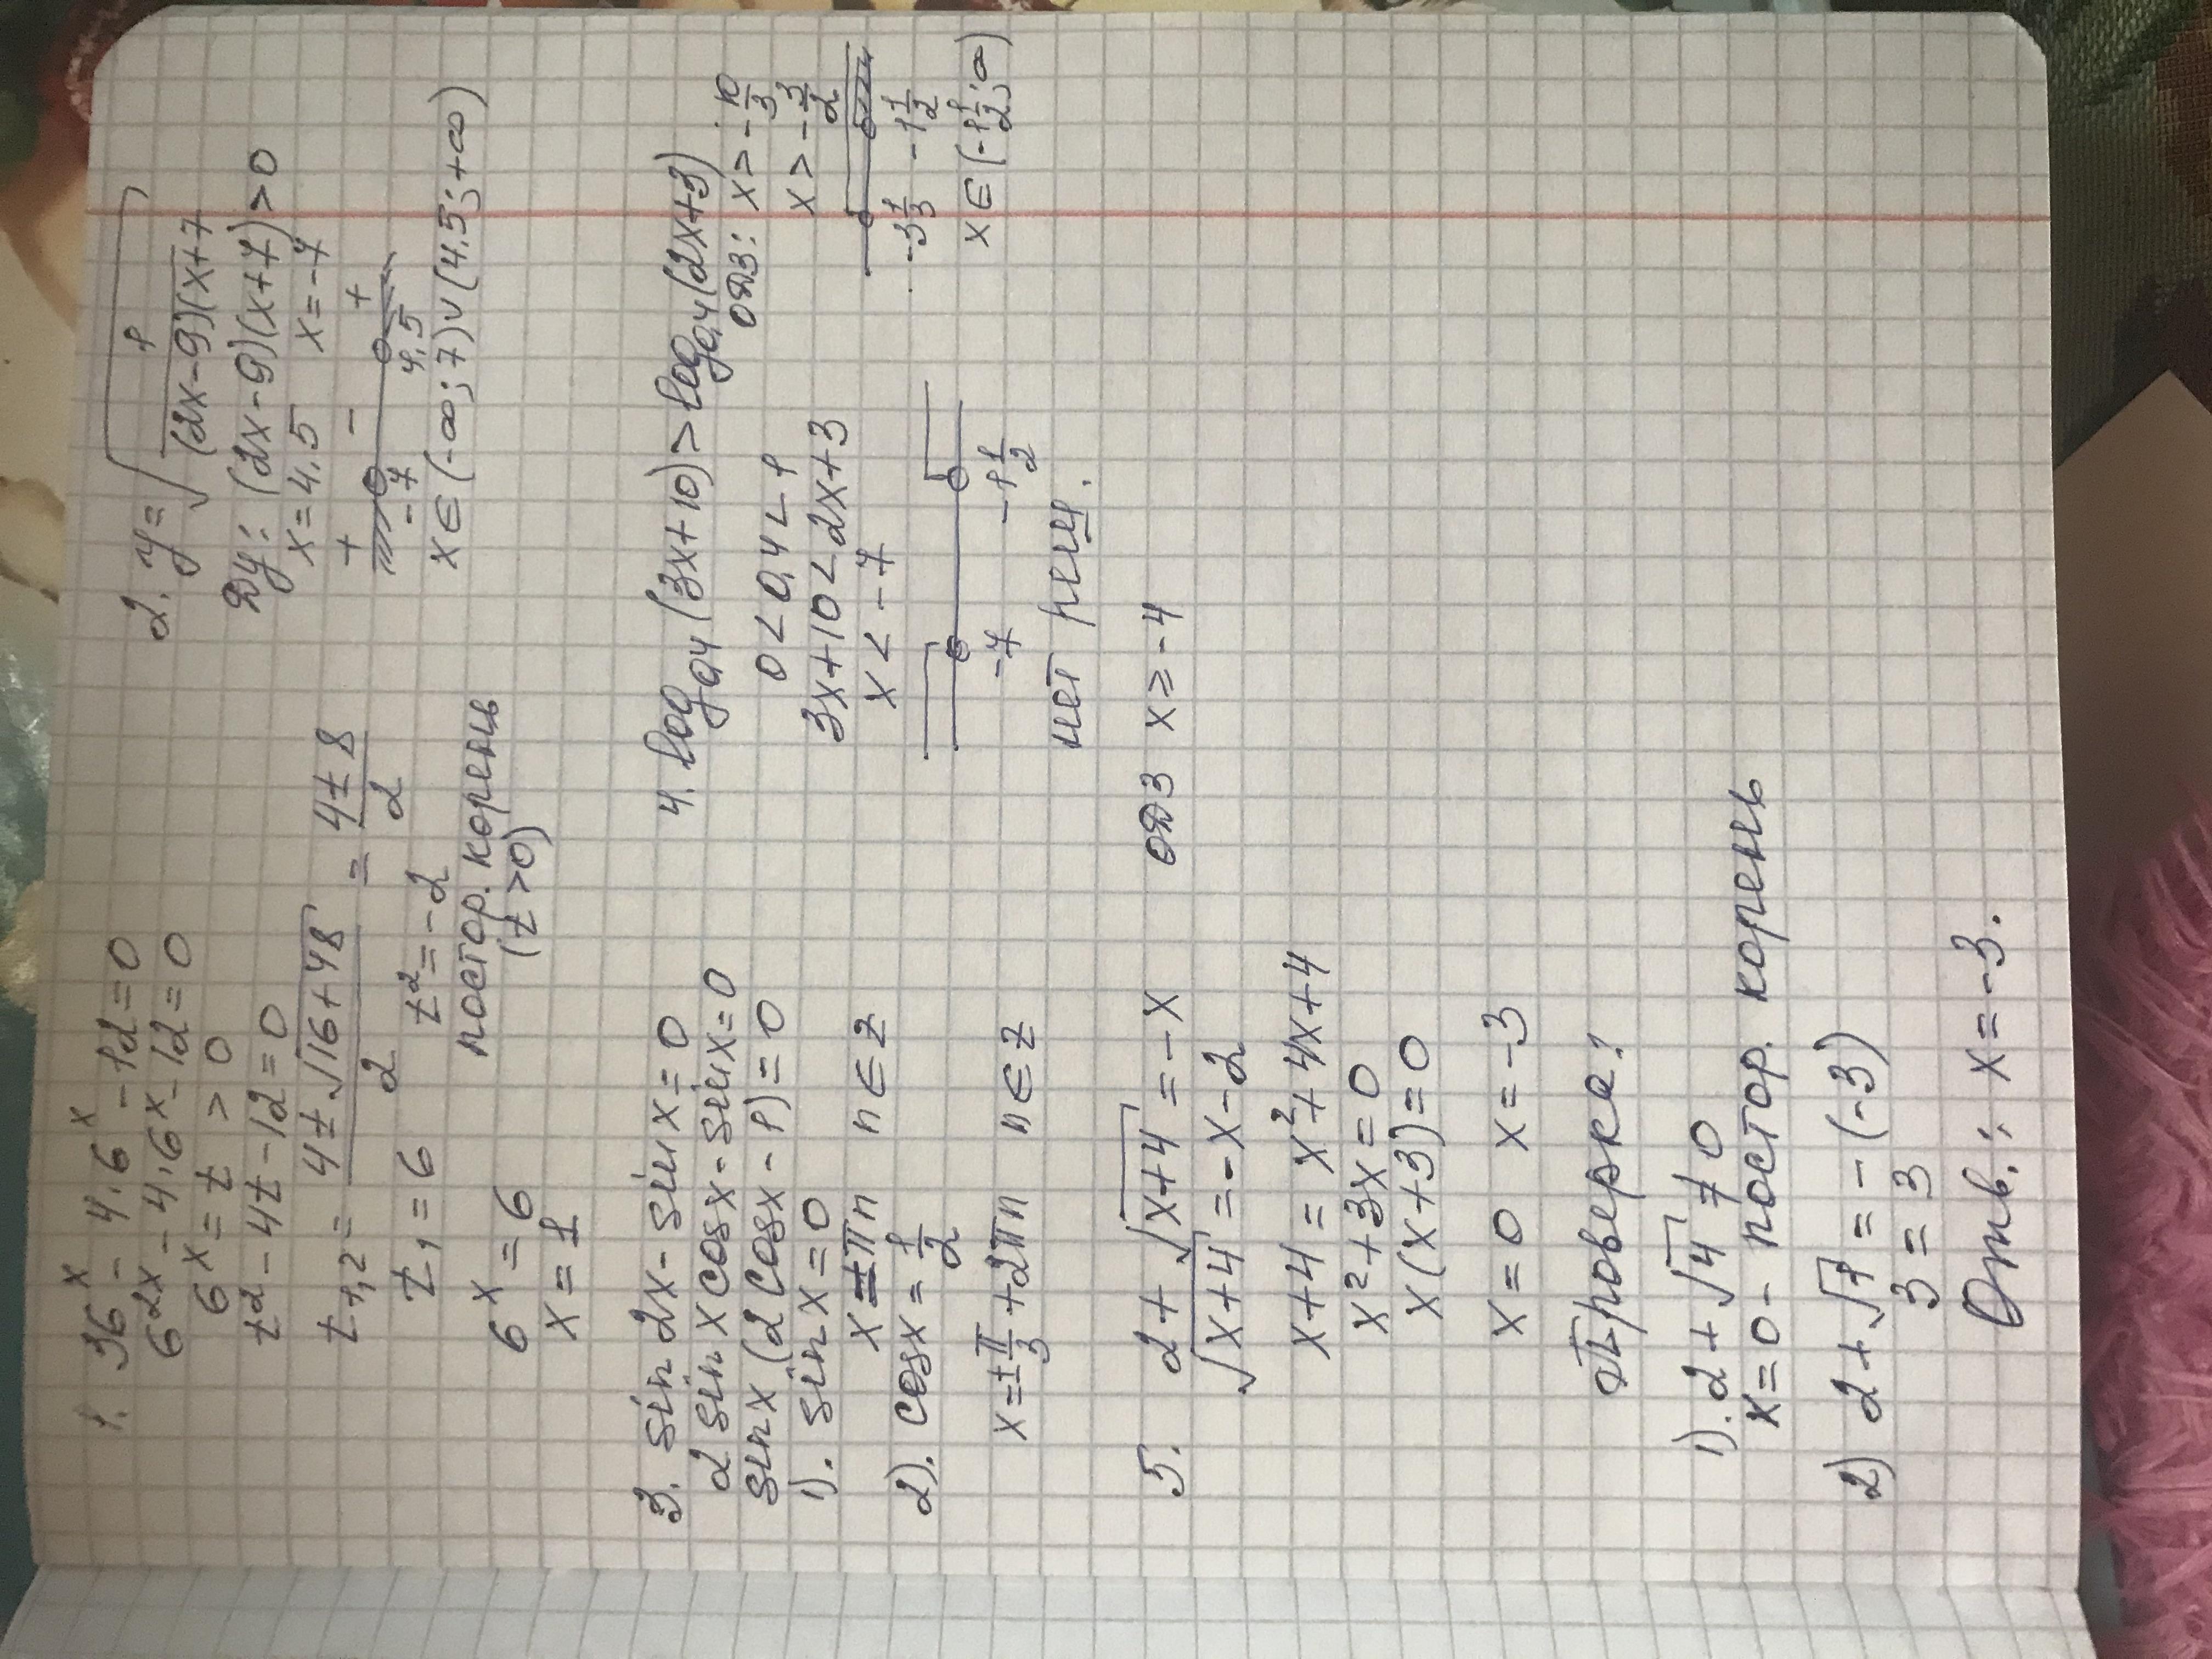 1. 36ˣ - 4·6ˣ - 12 = 0
6²ˣ - 4·6ˣ - 12 = 0
6ˣ = t > 0
t² - 4t - 12 = 0
t₁,₂ = (4 ± √(16+48))/2 = (4 ± 8)/2
t₁ = 6 t² = -2
постор. корень
(t > 0)
6ˣ = 6
x = 1
2. y = √(1/((2x-9)(x+7)))
Ду: (2x-9)(x+7) > 0
x = 4,5 x = -7
+ - +
-7 4,5
x ∈ (-∞; 7) ∪ (4,5; +∞)
3. sin 2x - sin x = 0
2 sin x cos x - sin x = 0
sin x (2 cos x - 1) = 0
1). sin x = 0
x = πn n ∈ z
2). cos x = 1/2
x = ± π/3 + 2πn n ∈ z
4. log₀,₄(3x+10) > log₀,₄(2x+3)
0 < 0,4 < 1
3x+10 < 2x+3
x < -7
ОДЗ: x > -10/3
x > -3/2
-3 1/3 -1 1/2
x ∈ (-1 1/2; ∞)
-7 -1 1/2
нет реш.
5. 2 + √(x+4) = -x ОДЗ x ≥ -4
√(x+4) = -x - 2
x+4 = x² + 4x + 4
x² + 3x = 0
x(x+3) = 0
x = 0 x = -3
Проверка:
1). 2 + √4 ≠ 0
x = 0 - постор. корень
2) 2 + √1 = -(-3)
3 = 3
Отв.: x = -3.